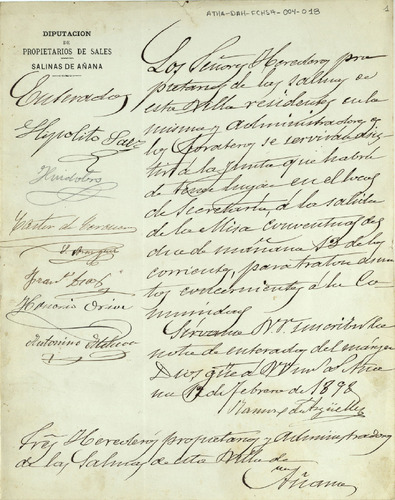 ATHA-DAH-FCHSA-004-018
1
DIPUTACION
DE
PROPIETARIOS DE SALES
SALINAS DE AÑANA
Enterados
Hipolito Saez
Antonino
Los Señores Herederos pro
pietarios de las salinas de
esta Villa residentes en la
misma y Administradores
los forasteros se servirán asis
tir á la Junta que habrá
de tener lugar en el local
de Secretaría á la salida
de la Misa conventual del
dia de mañana 13 de los
corrientes, para tratar asun
tos concernientes á la Co
munidad
Servanse VV. suscribir la
nota de enterados del margen
Dios gue á VV. m. a. Aña
na 12 de Febrero de 1898
Ramon de
Sres Herederos propietarios y Administradores
de las Salinas de esta Villa de
Añana